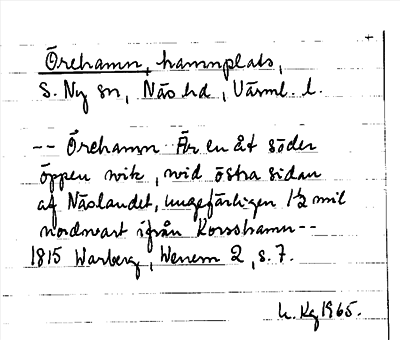 Örehamn, hamnplats,
S. Ny sn, Näs hd, Värml. l.
-- Örehamn Är en åt söder
öppen wik, wid östra sidan
af Näslandet, ungefärligen 1½ mil
nordwart ifrån Korsshamn--
1815 Warberg, Wenern 2, s. 7.
1965.